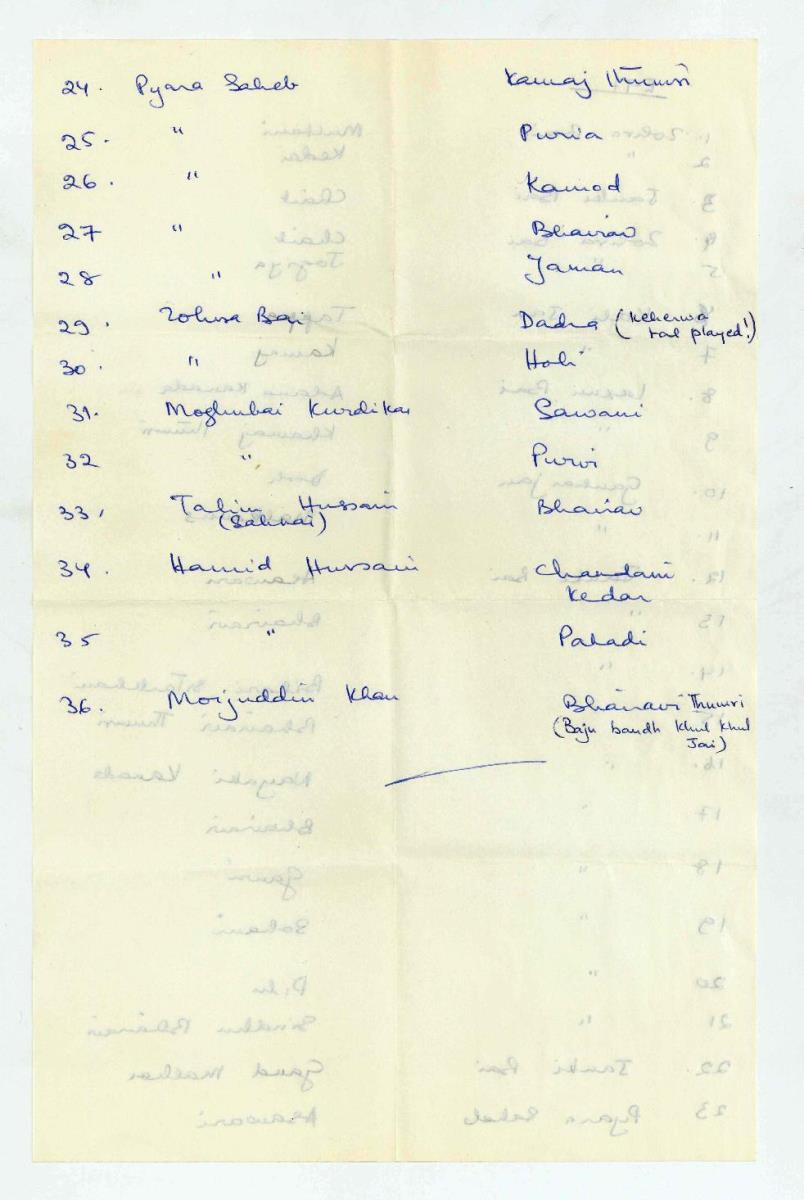 24. Pyara Saheb Kamaj Thumri
25. " Puria
26. " Kamod
27 " Bhairav
28 " Jaman
29. Zohra Bai Dadra (Keherwa
taal played!)
30. " Holi
31. Moghubai Kurdikar Sawani
32 " Purvi
33. Talim Hussain Bhairav
(Sahnai)
34. Hamid Hussain Chandani
Kedar
35 " Pahadi
36. Moijuddin Khan Bhairavi Thumri
(Baju bandh Khul Khul
Jai)